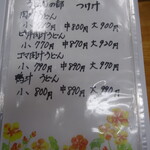 の部 つけ汁
肉汁うどん
小 中800円 大900円
ピリ辛肉汁うどん
小 770円 中870円 大920円
ゴマ肉汁うどん
小 790円 中890円 大970円
鴨汁 うどん
小、800円 中890円 大990円